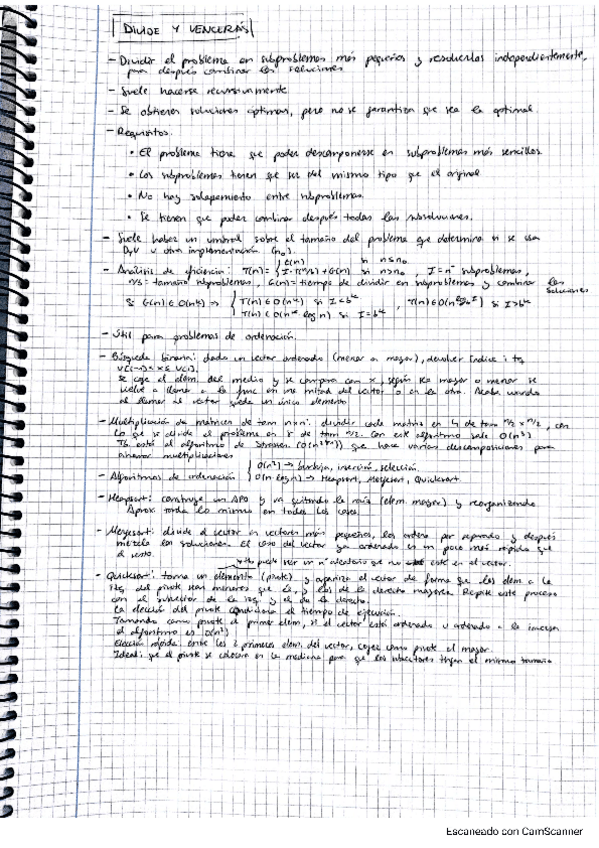 DIVIDE Y VENCERÁS
- Dividir el problema en subproblemas más pequeños y resolverlos independientemente,
para después combinar las soluciones
- Suele hacerse recursivamente
- Se obtienen soluciones óptimas, pero no se garantiza que sea la optimal.
- Requisitos.
• El problema tiene que poder descomponerse en subproblemas más sencillos
• Los subproblemas tienen que ser del mismo tipo que el original
• No hay solapamiento entre subproblemas
• Se tienen que poder combinar después todas las subsoluciones.
- Suele haber un umbral sobre el tamaño del problema que determina si se usa
DyV u otra implementación (n₀)
- Análisis de eficiencia: T(n) = { si n≤n₀
I·T(n/b)+G(n) si n>n₀, I=nº subproblemas,
n/b = tamaño subproblemas, G(n)=tiempo de dividir en subproblemas y combinar las
soluciones
Si G(n)∈O(nᵏ) ⇒ { T(n)∈O(nᵏ) si I<bᵏ , si I>bᵏ
T(n)∈O(nᵏ log n) si I=bᵏ
- Útil para problemas de ordenación.
- Búsqueda binaria: dado un vector ordenado (menor a mayor), devolver índice i tq
Se coge el elem. del medio y se compara con x, según sea mayor o menor se
vuelve a llamar a la func en una mitad del vector o en la otra. Acaba cuando
al llamar al vector quede un único elemento
- Multiplicación de matrices de tam n×n: dividir cada matriz en 4 de tam n/2 × n/2, con
lo que se divide el problema en 8 de tam n/2. Con este algoritmo sale O(n³)
Tb. está el algoritmo de Strassen que hace varias descomposiciones para
ahorrar multiplicaciones
- Algoritmos de ordenación { O(n²) → burbuja, inserción, selección.
O(n log n) → Heapsort, Mergesort, Quicksort.
- Heapsort: construye un APO y va quitando la raíz (elem. mayor) y reorganizando
Aprox tarda lo mismo en todos los casos.
- Mergesort: divide el vector en vectores más pequeños, los ordena por separado y después
mezcla las soluciones. El caso del vector ya ordenado es un poco más rápido que
el resto.
puede ser un nº aleatorio que no esté en el vector.
- Quicksort: toma un elemento (pivote) y organiza el vector de forma que los elem a la
izq. del pivote sean menores que él, y los de la derecha mayores. Repite este proceso
con el subvector de la izq. y el de la derecha.
La elección del pivote condiciona el tiempo de ejecución.
Tomando como pivote el primer elem, si el vector está ordenado u ordenado a la inversa
el algoritmo es O(n²)
Elección rápida: entre los 2 primeros elem. del vector, coger como pivote el mayor.
Ideal: que el pivote se coloque en la mediana para que los subvectores tengan el mismo tamaño
Escaneado con CamScanner